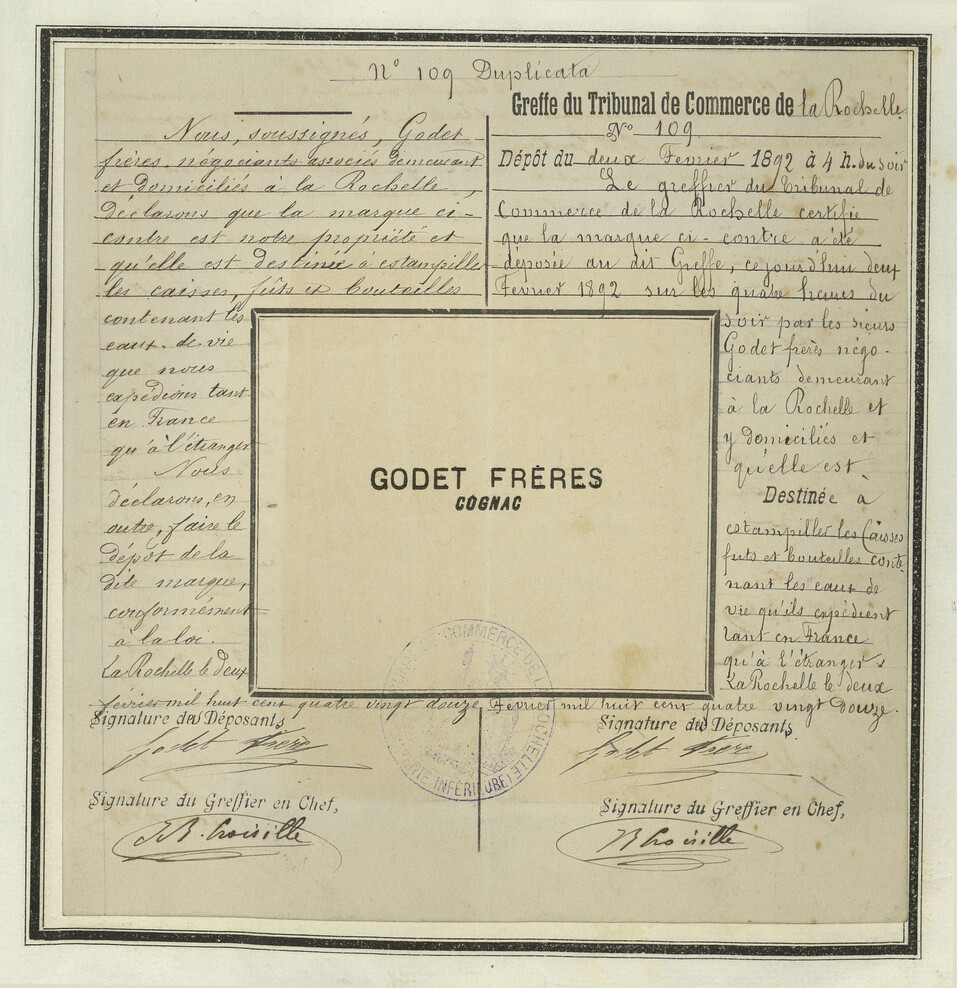 N° 109 Duplicata
Nous, soussignés, Godet
frères, négociants associés demeurant
et domiciliés à la Rochelle,
déclarons que la marque ci-
contre est notre propriété et
qu'elle est destinée à estampiller
les caisses, fûts et bouteilles
contenant les
eaux-de-vie
que nous
expédions tant
en France
qu'à l'étranger
Nous
déclarons, en
outre, faire le
dépôt de la
dite marque,
conformément
à la loi.
La Rochelle le deux
février mil huit cent quatre vingt douze
Signature des Déposants
Godet Frères
Signature du Greffier en Chef,
Greffe du Tribunal de Commerce de la Rochelle
N° 109
Dépôt du deux Fevrier 1892 à 4 h. du soir
Le greffier du Tribunal de
Commerce de la Rochelle certifie
que la marque ci-contre a été
déposée au dit Greffe, cejourd'hui deux
Fevrier 1892 sur les quatre heures du
soir par les sieurs
Godet frères négo-
ciants demeurant
à la Rochelle et
y domiciliés et
qu'elle est
Destinée à
estampiller les Caisses
futs et bouteilles conte-
nant les eaux de
vie qu'ils expédient
tant en France
qu'à l'étranger
La Rochelle le deux
Fevrier mil huit cent quatre vingt douze.
Signature des Déposants
Godet Frères
Signature du Greffier en Chef,
GODET FRÈRES
COGNAC
COMMERCE DE LA ROCHELLE
INFÉRIEURE